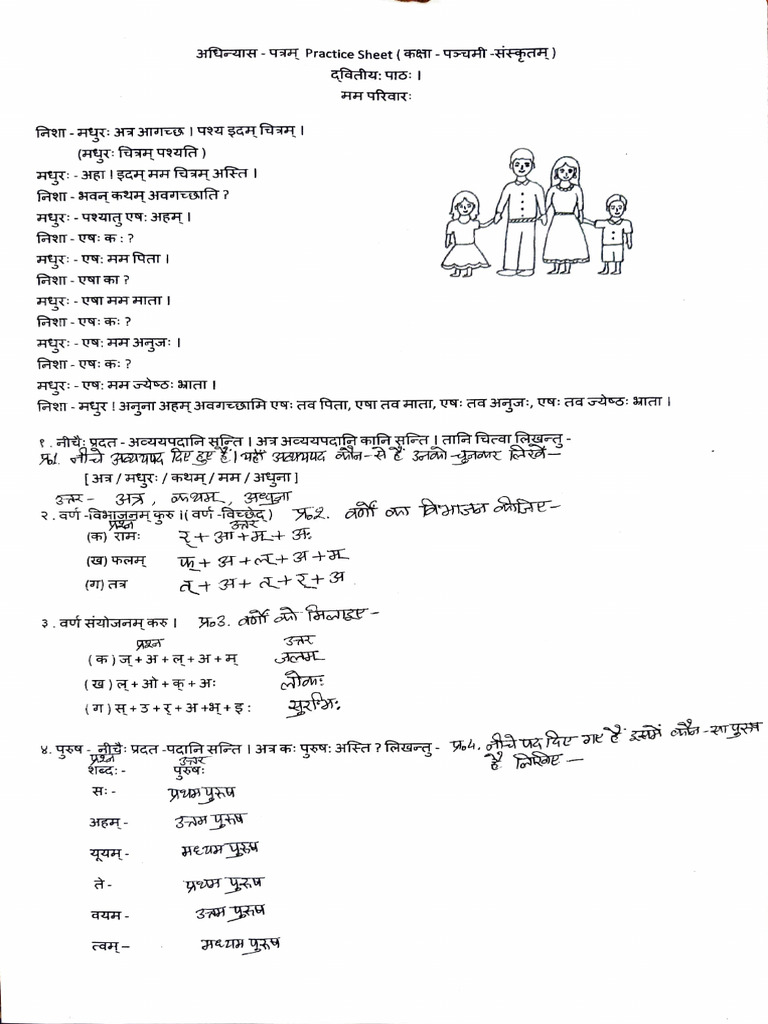 अधिन्यास - पत्रम् Practice Sheet ( कक्षा - पञ्चमी -संस्कृतम् )
द्वितीय: पाठः ।
मम परिवारः
निशा - मधुरः अत्र आगच्छ । पश्य इदम् चित्रम् ।
(मधुरः चित्रम् पश्यति )
मधुरः - अहा ! इदम् मम चित्रम् अस्ति ।
निशा - भवन् कथम् अवगच्छाति ?
मधुरः - पश्यातु एषः अहम् ।
निशा - एषः क : ?
मधुरः - एषः मम पिता ।
निशा - एषा का ?
मधुरः - एषा मम माता ।
निशा - एषः कः ?
मधुरः - एषः मम अनुजः ।
निशा - एषः कः ?
मधुरः - एषः मम ज्येष्ठः भ्राता ।
निशा - मधुर ! अनुना अहम् अवगच्छामि एषः तव पिता, एषा तव माता, एषः तव अनुजः, एषः तव ज्येष्ठः भ्राता ।
१ . नीचैः प्रदत - अव्ययपदानि सन्ति । अत्र अव्ययपदानि कानि सन्ति । तानि चित्वा लिखन्तु -
प्र०1. नीचे अव्ययपद दिए हुए हैं। यहाँ अव्ययपद कौन-से हैं उनको चुनकर लिखें-
[ अत्र / मधुरः / कथम् / मम / अधुना ]
उत्तर - अत्र , कथम् , अधुना
२ . वर्ण -विभाजनम् कुरु ।( वर्ण -विच्छेद् ) प्र०2. वर्णों का विभाजन कीजिए-
प्रश्न उत्तर
(क) रामः र् + आ + म् + अः
(ख) फलम् फ् + अ + ल् + अ + म्
(ग) तत्र त् + अ + त् + र् + अ
३ . वर्ण संयोजनम् करु । प्र०3. वर्णों को मिलाइए-
प्रश्न उत्तर
( क ) ज् + अ + ल् + अ + म् जलम्
( ख ) ल् + ओ + क् + अः लोकः
( ग ) स् + उ + र् + अ +भ् + इ : सुरभिः
४. पुरुष - नीचैः प्रदत -पदानि सन्ति । अत्र कः पुरुषः अस्ति ? लिखन्तु - प्र०4. नीचे पद दिए गए हैं इसमें कौन-सा पुरुष
है लिखिए-
प्रश्न उत्तर
शब्दः - पुरुषः
सः - प्रथम पुरुष
अहम् - उत्तम पुरुष
यूयम् - मध्यम पुरुष
ते - प्रथम पुरुष
वयम - उत्तम पुरुष
त्वम् – मध्यम पुरुष